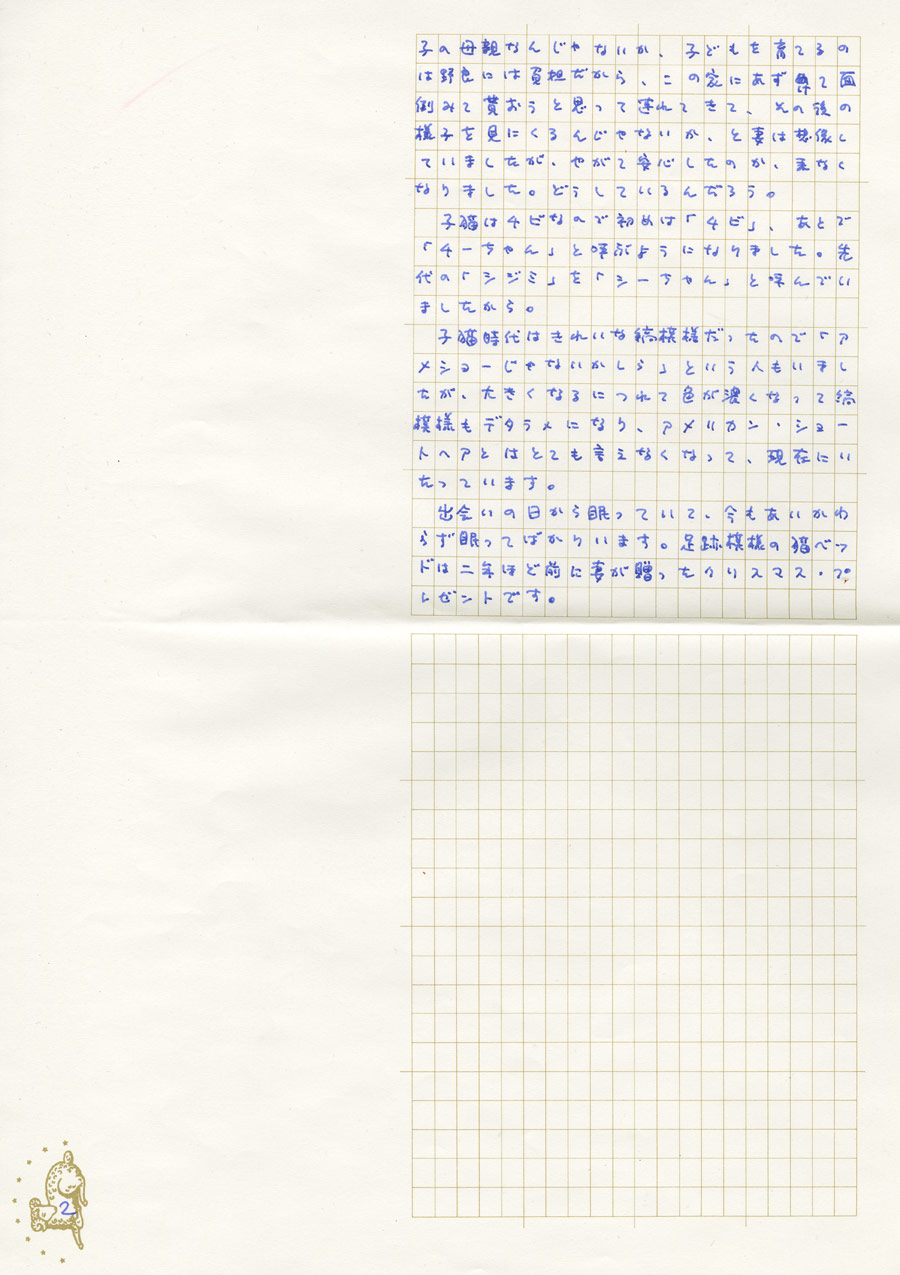 子の母親なんじゃないか、子どもを育てるの
は野良には負担だから、この家にあずけて面
倒みて貰おうと思って連れてきて、その後の
様子を見にくるんじゃないか、と妻は想像し
ていましたが、やがて安心したのか、来なく
なりました。どうしているんだろう。
子猫はチビなので初めは「チビ」、あとで
「チーちゃん」と呼ぶようになりました。先
代の「シジミ」を「シーちゃん」と呼んでい
ましたから。
子猫時代はきれいな縞模様だったので「ア
メショーじゃないかしら」という人もいまし
たが、大きくなるにつれて色が濃くなって縞
模様もデタラメになり、アメリカン・ショー
トヘアとはとても言えなくなって、現在にい
たっています。
出会いの日から眠っていて、今もあいかわ
らず眠ってばかりいます。足跡模様の猫ベッ
ドは二年ほど前に妻が贈ったクリスマス・プ
レゼントです。
2